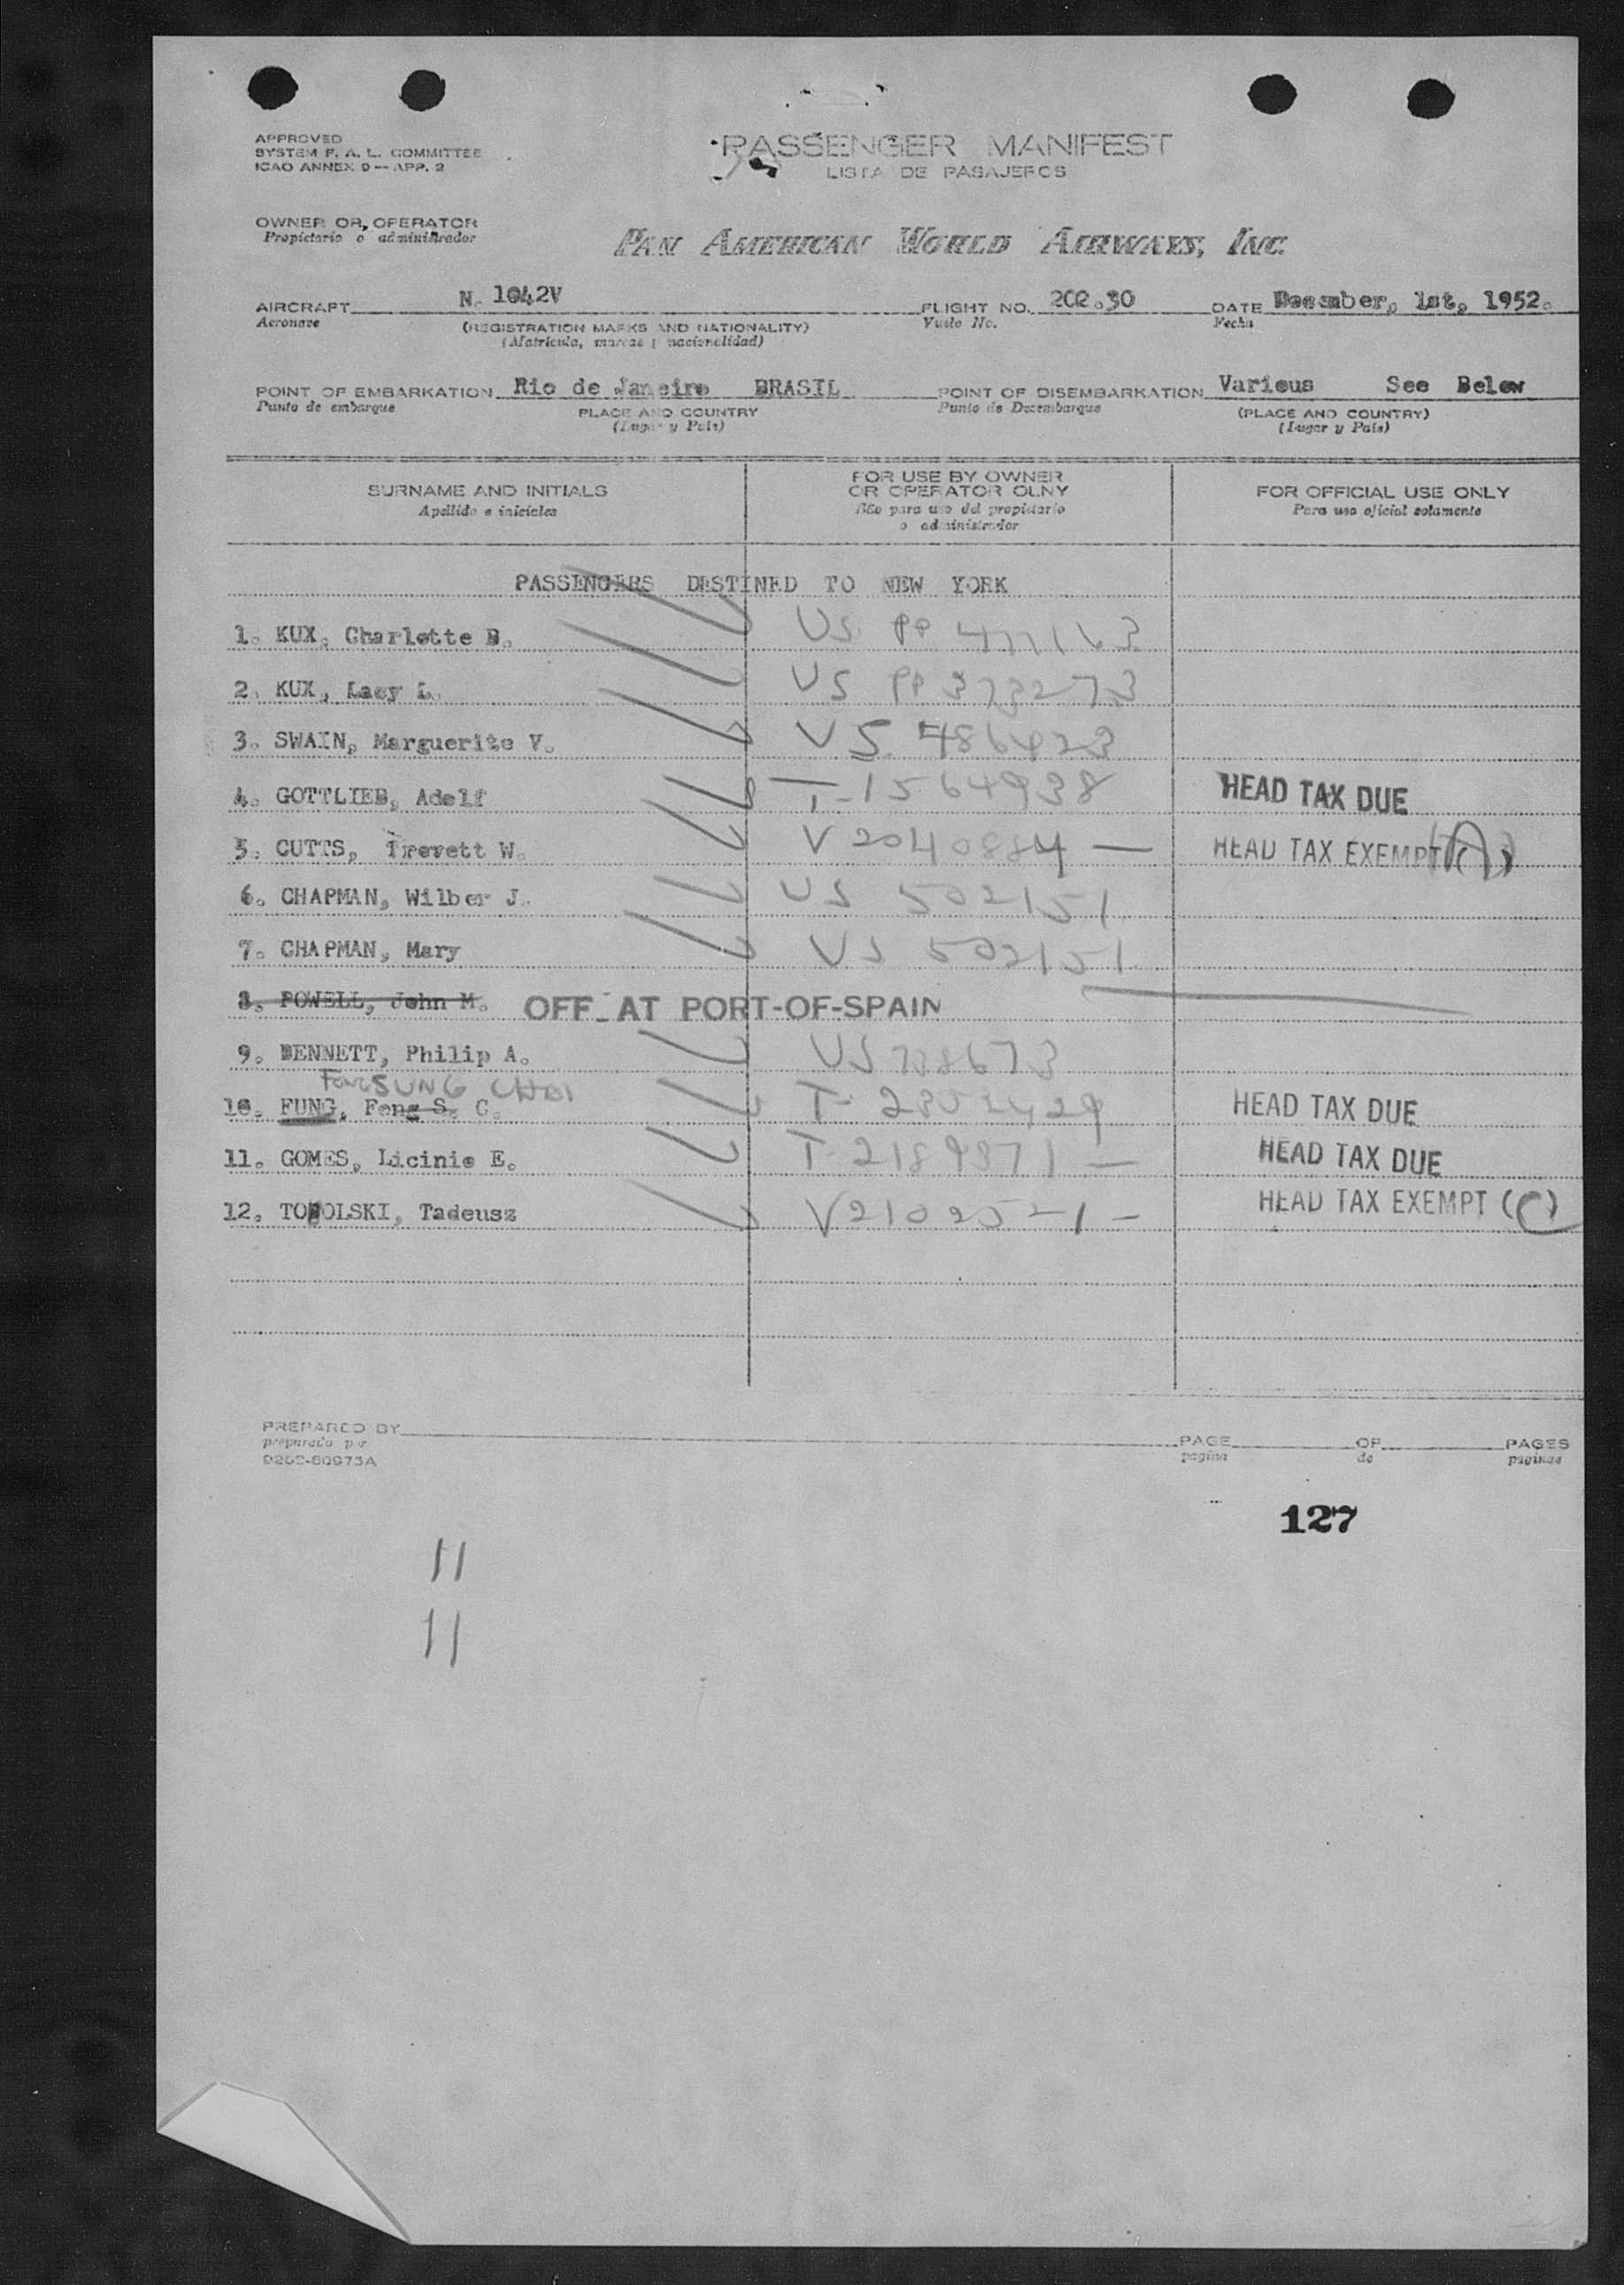 APPROVED
SYSTEM F. A. L. COMMITTEE
ICAO ANNEX 9 — APP. 2
PASSENGER MANIFEST
LISTA DE PASAJEROS
OWNER OR OPERATOR
Propietario o administrador
PAN AMERICAN WORLD AIRWAYS, INC.
AIRCRAFT N. 1042V FLIGHT NO. 202.30 DATE December, 1st, 1952.
Aeronave (REGISTRATION MARKS AND NATIONALITY) Vuelo No. Fecha
(Matricula, marcas y nacionalidad)
POINT OF EMBARKATION Rio de Janeiro BRASIL POINT OF DISEMBARKATION Various See Below
Punto de embarque PLACE AND COUNTRY Punto de Desembarque (PLACE AND COUNTRY)
(Lugar y País) (Lugar y País)
SURNAME AND INITIALS FOR USE BY OWNER OR OPERATOR OLNY FOR OFFICIAL USE ONLY
Apellido e iniciales Sólo para uso del propietario o administrador Para uso oficial solamente
PASSENGERS DESTINED TO NEW YORK
1. KUX, Charlotte B. US PP 477163
2. KUX, Lacy L. US PP 373273
3. SWAIN, Marguerite V. US 486923
4. GOTTLIEB, Adolf T-1564938 HEAD TAX DUE
5. CUTTS, Trevett W. V 2040884 — HEAD TAX EXEMPT (A)
6. CHAPMAN, Wilber J. US 502151
7. CHAPMAN, Mary US 502151
8. POWELL, John M. OFF AT PORT-OF-SPAIN
9. BENNETT, Philip A. US 738673
FONG SUNG CHOI
10. FUNG, Fong S. C. T- HEAD TAX DUE
11. GOMES, Licinio E. T-2189371 — HEAD TAX DUE
12. TOPOLSKI, Tadeusz V2102521 — HEAD TAX EXEMPT (C)
PREPARED BY PAGE OF PAGES
preparado por pagina de paginas
127
11
11